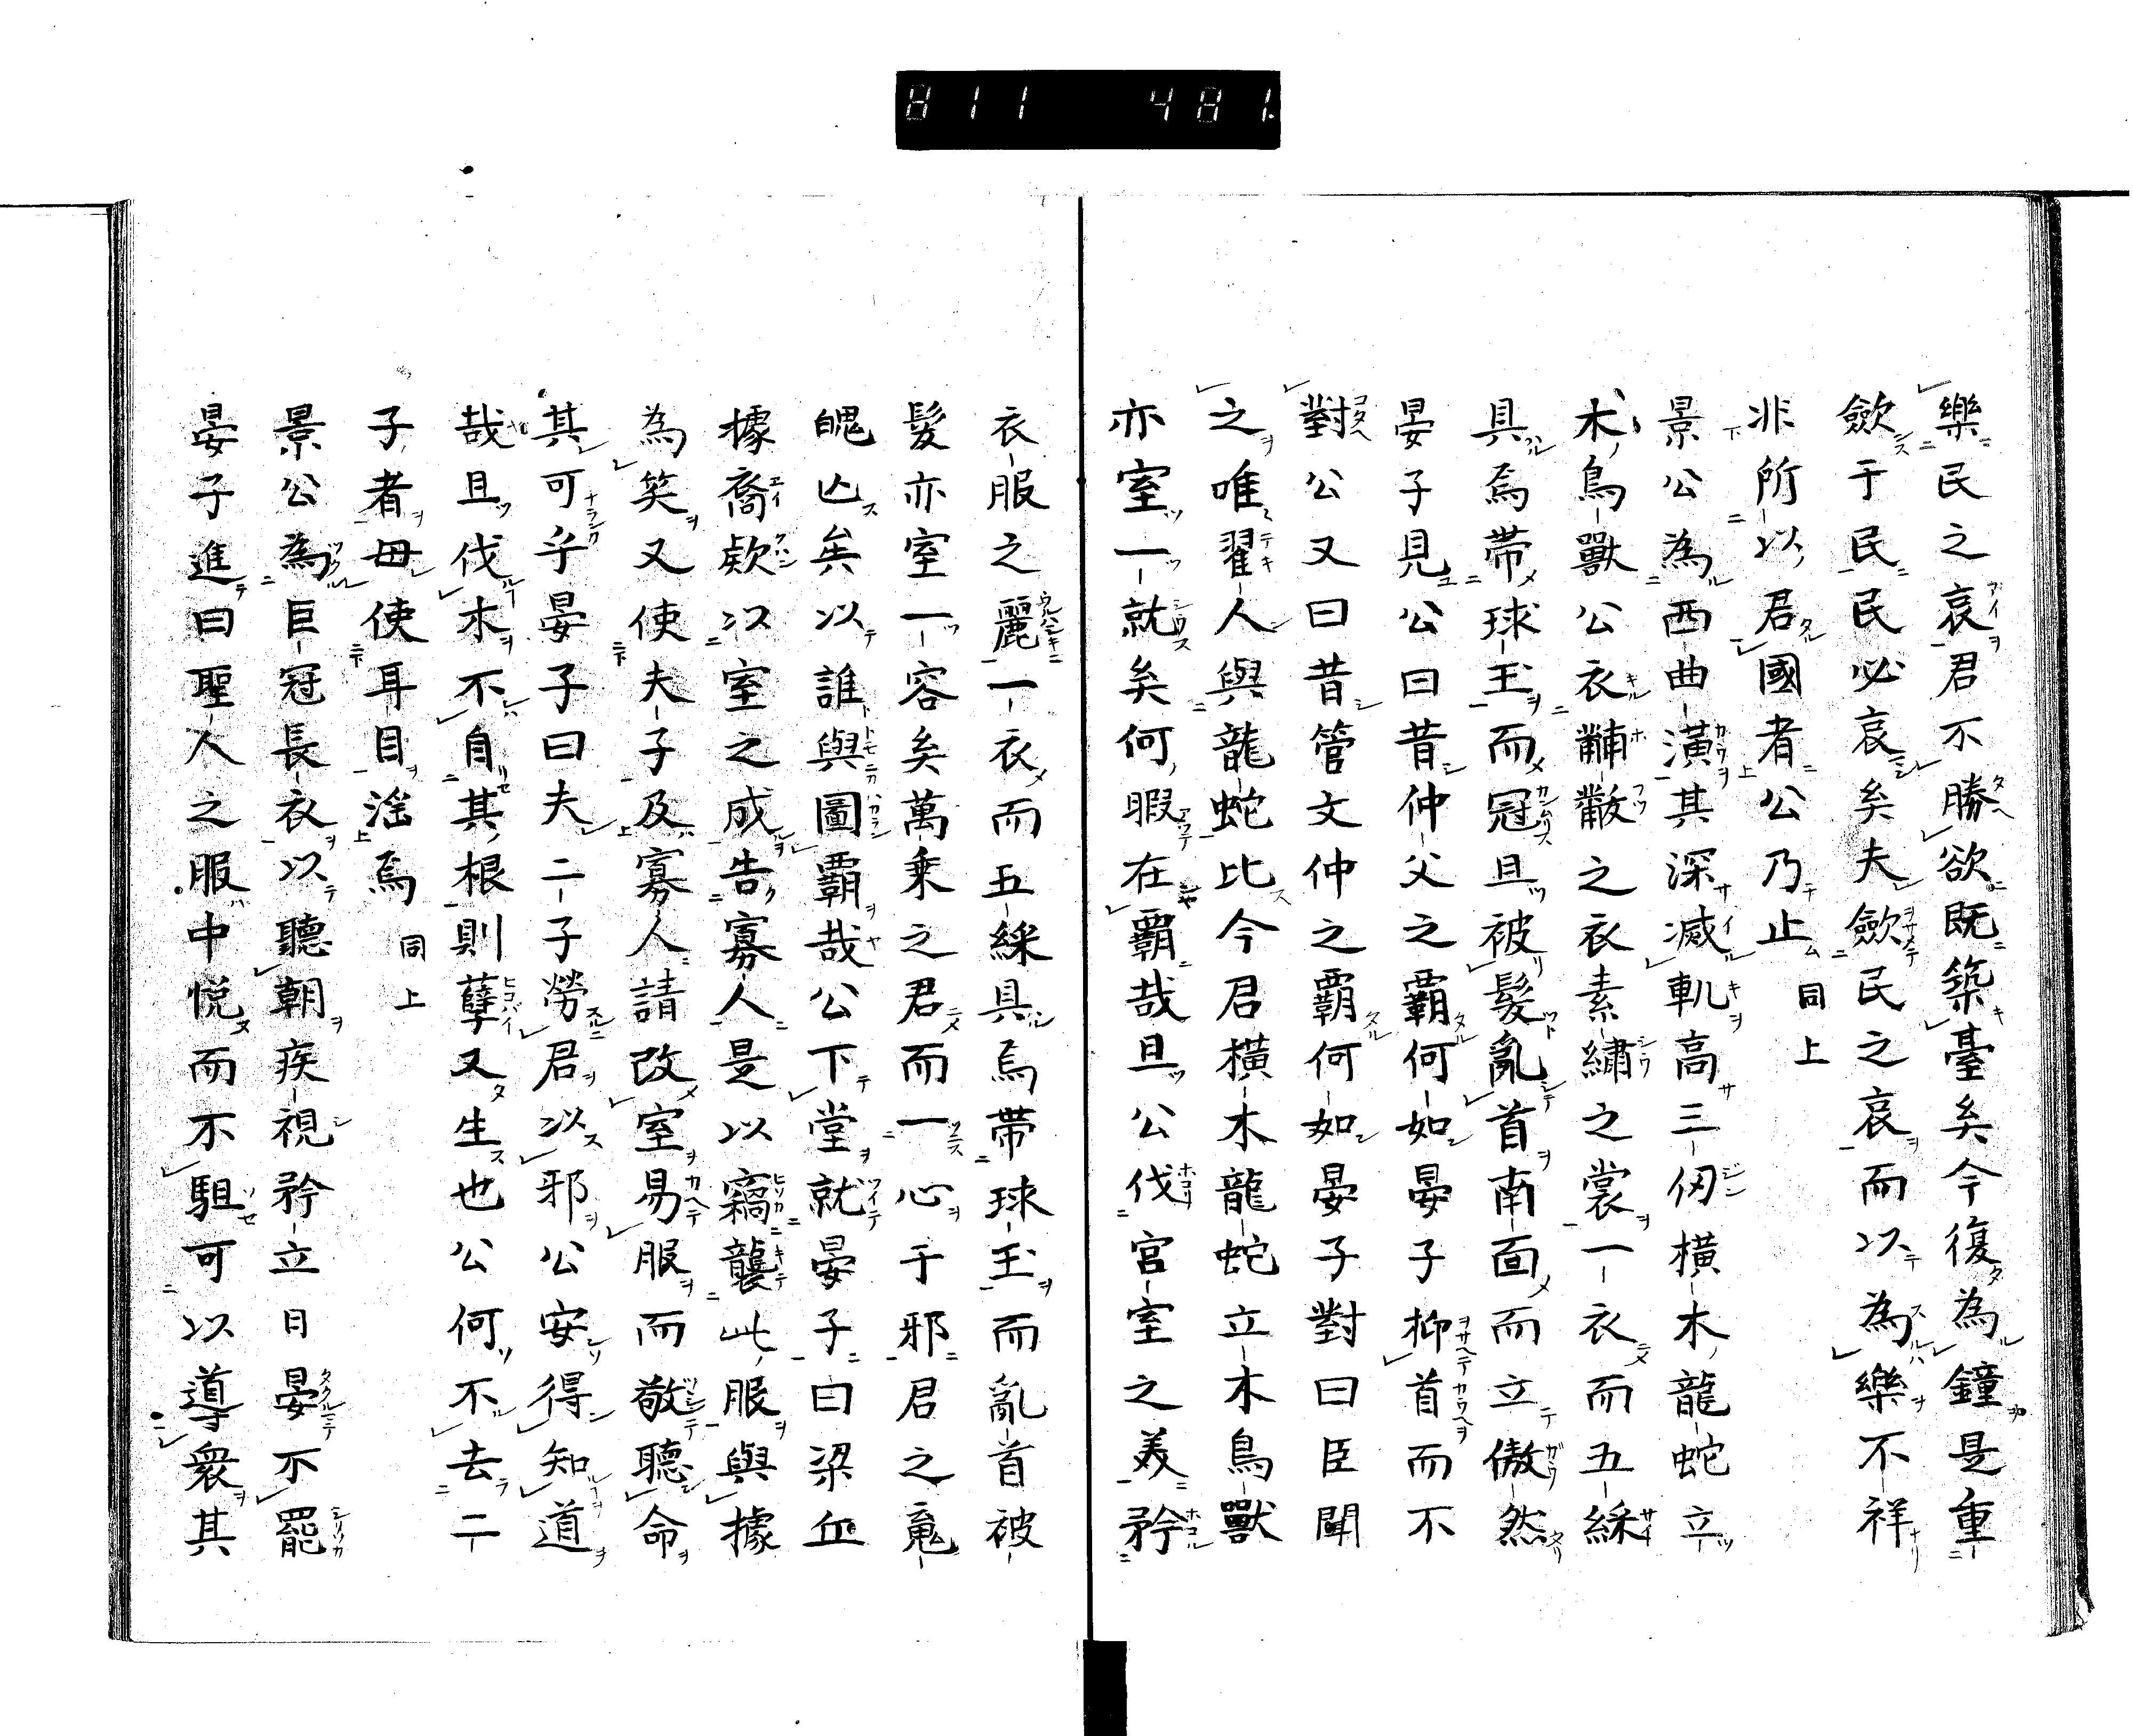 811 481.
樂民之哀君不勝欲既築臺矣今復為鐘是重
歛于民民必哀矣夫歛民之哀而以為樂不祥
非所以君國者公乃止 同上
景公為西曲潢其深滅軌高三仞橫木龍蛇立
木鳥獸公衣黼黻之衣素繡之裳一衣而五綵
具焉帯球玉而冠且被髮亂首南面而立傲然
晏子見公曰昔仲父之覇何如晏子抑首而不
對公又曰昔管文仲之覇何如晏子對曰臣聞
之唯翟人與龍蛇比今君橫木龍蛇立木鳥獸
亦室一就矣何暇在覇哉且公伐宮室之美矜
衣服之麗一衣而五綵具焉帯球玉而亂首被
髮亦室一容矣萬乗之君而一心于邪君之䰟
魄亾矣以誰與圖覇哉公下堂就晏子曰梁丘
據裔欵以室之成告寡人是以竊襲此服與據
為笑又使夫子及寡人請改室易服而敬聽命
其可乎晏子曰夫二子勞君以邪公安得知道
哉且伐木不自其根則孽又生也公何不去二
子者毋使耳目滛焉 同上
景公為巨冠長衣以聽朝疾視矜立日晏不罷
晏子進曰聖人之服中悅而不駔可以導衆其